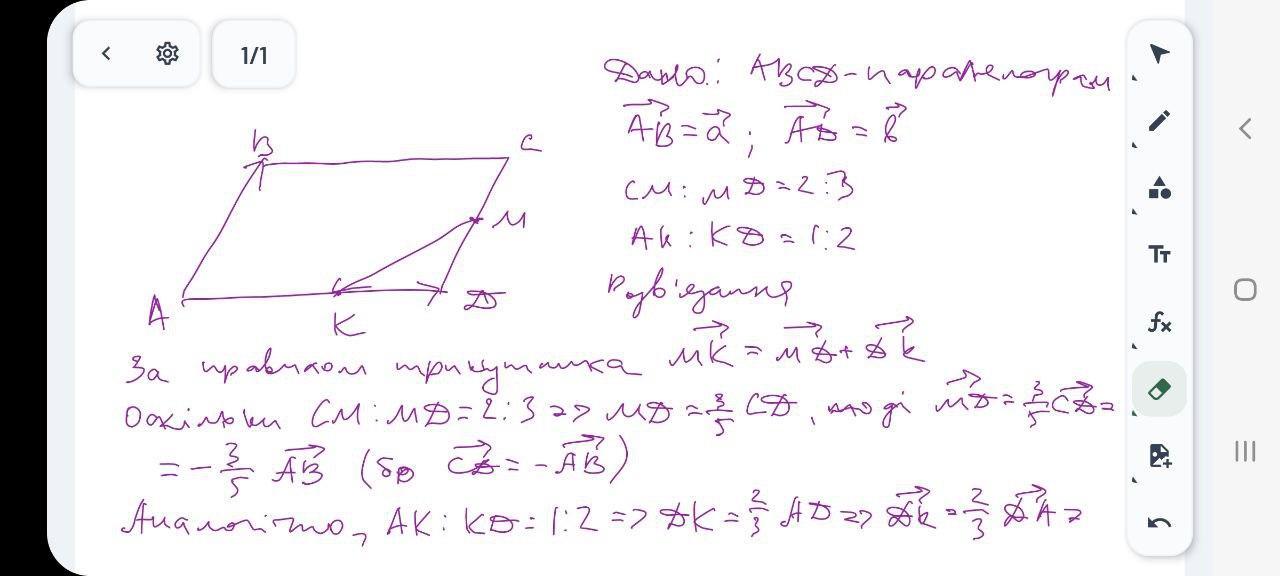 1/1
Дано: ABCD - паралелограм
AB = a ; AD = b
CM : MD = 2 : 3
AK : KD = 1 : 2
Розв'язання
B
C
M
A
K
D
За правилом трикутника MK = MD + DK
Оскільки CM : MD = 2 : 3 => MD = 3/5 CD, тоді MD = 3/5 CD =
= - 3/5 AB (бо CD = - AB)
Аналогічно, AK : KD = 1 : 2 => DK = 2/3 AD => DK = 2/3 DA =
Tт
fx